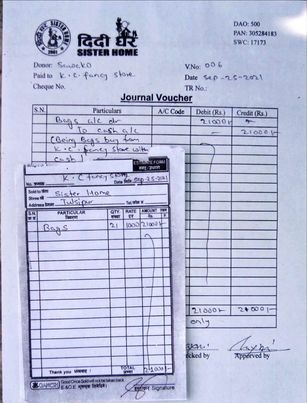 DAO: 500
PAN: 305284183
SWC: 17173
दिदी घर
SISTER HOME
2001
Donor:
V.No: 006
Paid to K.C. fancy store
Date Sep-25-2021
Cheque No.
TR No.:
Journal Voucher
S.N. Particulars A/C Code Debit (Rs.) Credit (Rs.)
Bags a/c dr 21000/-
To cash a/c 21000/-
(Being Bags buy from
K.C. fancy store with
cash)
ESTIMATE FORM
K.C fancy store
No. Date Sep-25-2021
Sold to Sister Home
Address Tulsipur
S.N. PARTICULAR QTY. RATE AMOUNT
Bags 21 1000 21000/-
Thank you धन्यवाद ! TOTAL 21000/-
Good Once Sold will not be taken back
E.& O.E. Signature
21000/- 21000/-
only
Approved by